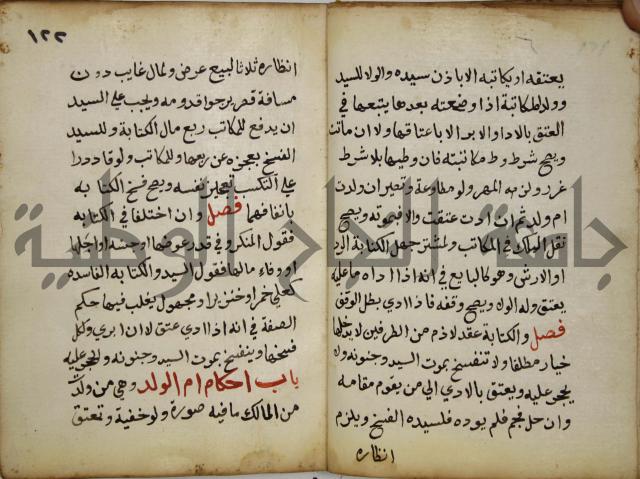 يعتقه او يكاتبه الا باذن سيده والولا للسيد
وولد المكاتبة اذا وضعته بعدها يتبعها في
العتق بالادا او الابرا لا باعتاقها ولا ان ماتت
ويصح شرط وطء مكاتبته فان وطيها بلا شرط
عزر ولزمه المهر ولو مطاوعة وتصير ان ولدت
ام ولد ثم ان ادت عتقت والا فبموته ويصح
نقل الملك في المكاتب ولمشتر جهل الكتابة الرد
او الارش وهو كالبايع في انه اذا اداه ما عليه
يعتق وله الولا ويصح وقفه فاذا ادي بطل الوقف
فصل والكتابة عقد لازم من الطرفين لا يدخلها
خيار مطلقا ولا تنفسخ بموت السيد وجنونه ولا
بحجر عليه ويعتق بالادي الي من يقوم مقامه
وان حل نجم فلم يوده فلسيده الفسخ ويلزم
انظاره
١٢٢
انظاره ثلاثا لبيع عرض ولمال غايب دون
مسافة قصر يرجوا قدومه ويجب على السيد
ان يدفع للمكاتب ربع مال الكتابة وللسيد
الفسخ بعجزه عن ربعها وللمكاتب ولو قادرا
على التكسب تعجيز نفسه ويصح فسخ الكتابه
باتفاقهما فصل وان اختلفا في الكتابه
فقول المنكر وفي قدر عوضها وجنسه او اجلها
او وفاء مالها فقول السيد والكتابه الفاسده
كعلي خمر او خنزير او مجهول يغلب فيها حكم
الصفة في انه اذا ادي عتق لا ان ابري ولكل
فسخها وينفسخ بموت السيد وجنونه والحجر عليه
باب احكام ام الولد وهي من ولدت
من المالك ما فيه صورة ولو خفية وتعتق
جامعة النجاح الوطنية